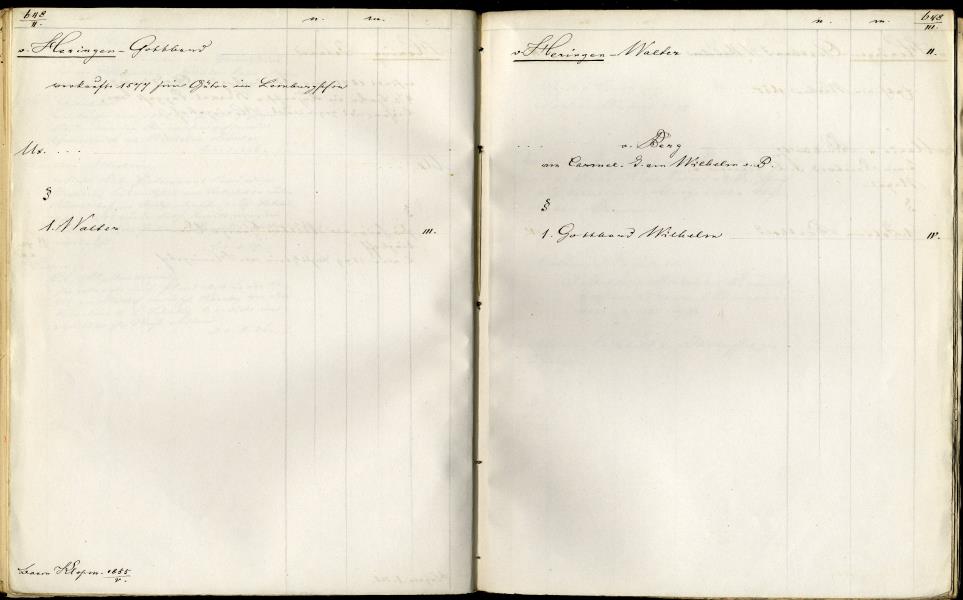 648
II.
n. m.
v. Heringen - Gotthard
verkaufte 1577 seine Güter im
Ux. . . .
§
1. Walter III.
1855
V.
n. m. 648
III.
v. Heringen - Walter II.
. . . . v. Berg
Wilhelm v. B.
§
1. Gotthard Wilhelm IV.